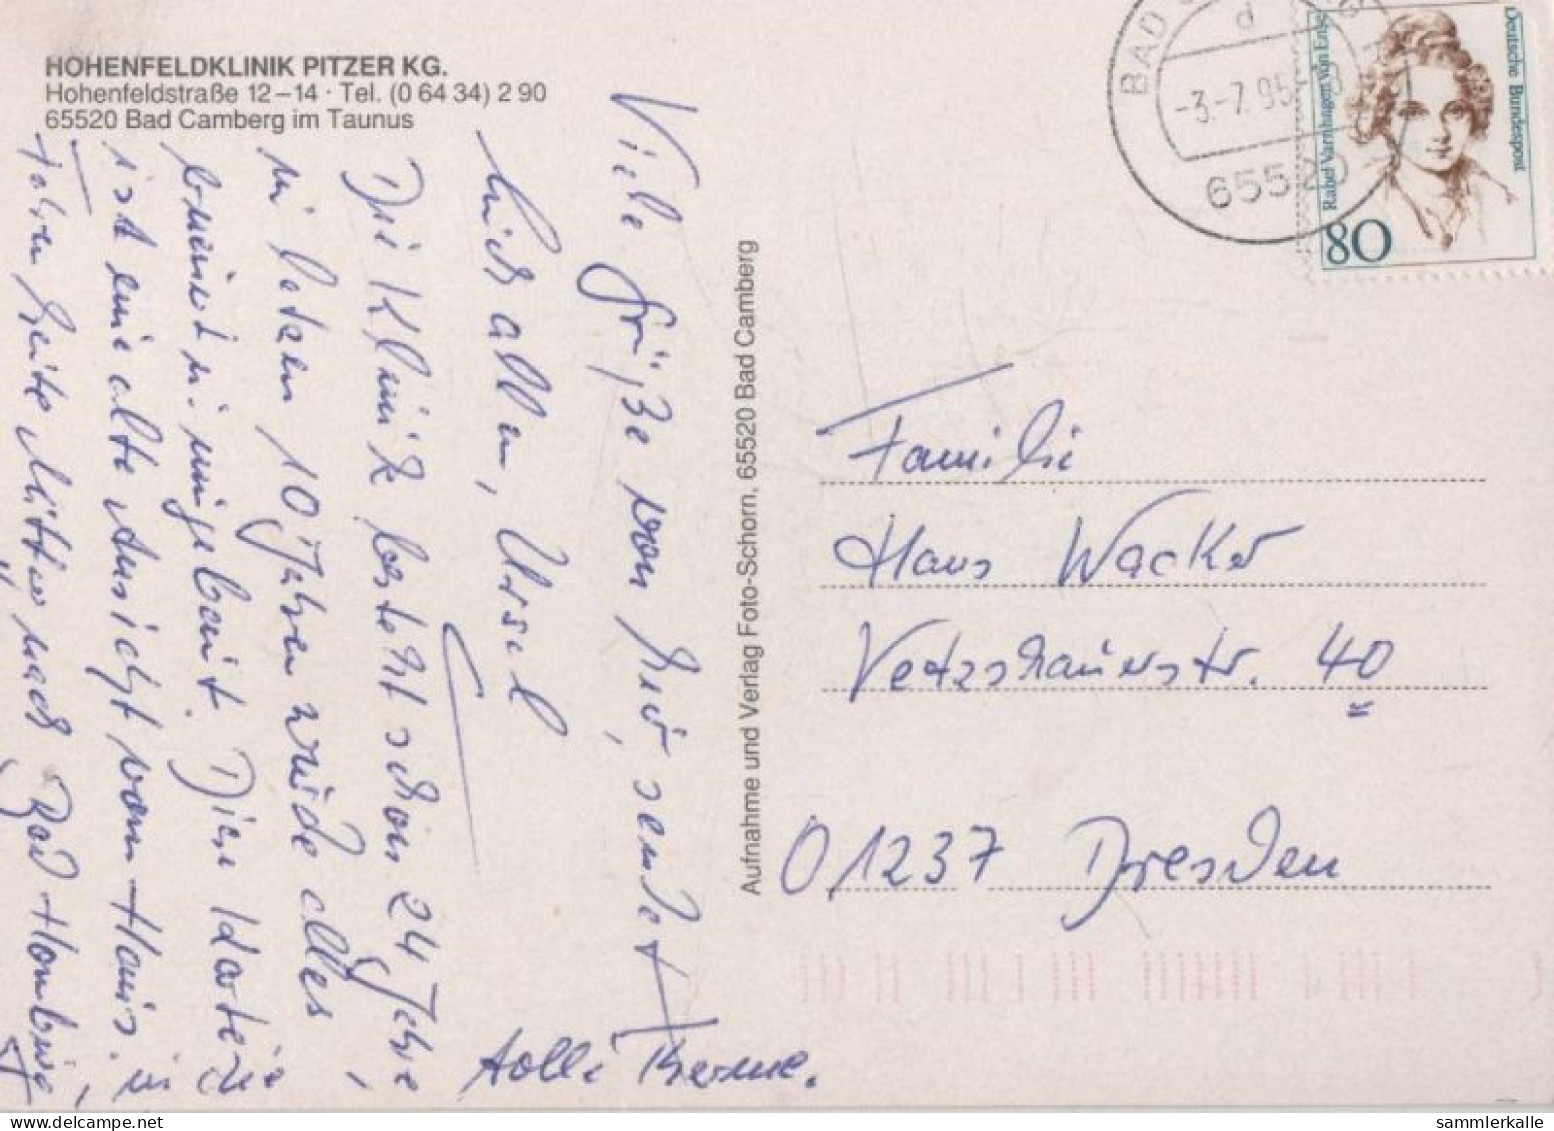 HOHENFELDKLINIK PITZER KG.
Hohenfeldstraße 12–14 · Tel. (0 64 34) 2 90
65520 Bad Camberg im Taunus
Viele Grüße von hier, sendet
Euch allen, Ursel
Die Klinik besteht schon 24 Jahre,
in letzen 10 Jahren wurde alles
erneuert u. umgebaut. Diese Karte
ist eine alte Ansicht vom Haus. in
fahren heute Mittag nach Bad Homburg,
tolle Therme.
Aufnahme und Verlag Foto-Schorn, 65520 Bad Camberg
BAD
d
-3.-7.95
65520
Rahel Varnhagen von Ense
Deutsche Bundespost
80
Familie
Hans Wacker
40
01237 Dresden
sammlerkalle